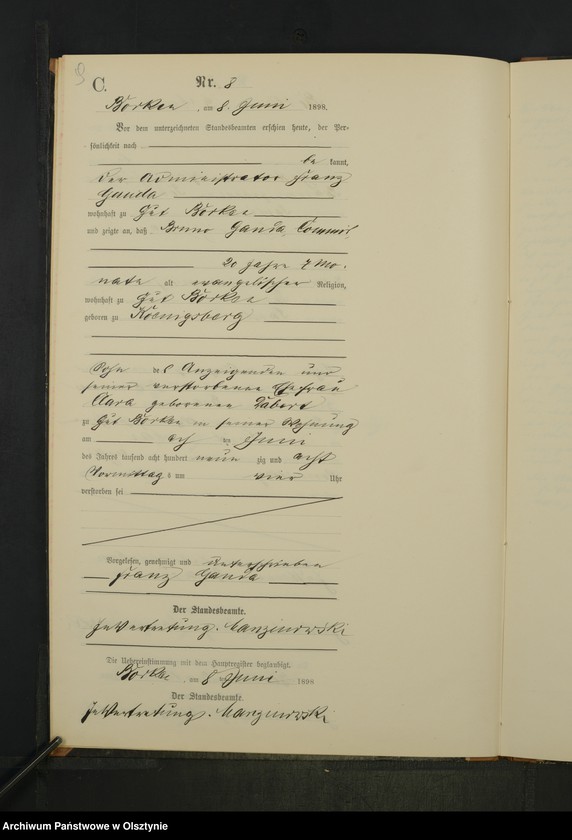 C.
Nr. 8
Borken, am 8. Juni 1898.
Vor dem unterzeichneten Standesbeamten erschien heute, der Per-
sönlichkeit nach
be kannt,
der Administrator Franz
Ganda
wohnhaft zu Gut Borken
und zeigte an, daß Bruno Ganda,
20 Jahre 7 Mo-
nate alt evangelischer Religion,
wohnhaft zu Gut Borken
geboren zu Koenigsberg
Sohn des Anzeigenden und
seiner verstorbenen Ehefrau
Clara geborenen
zu Gut Borken in seiner Wohnung
am acht en Juni
des Jahres tausend acht hundert neun zig und acht
Vormittags um vier Uhr
verstorben sei
Vorgelesen, genehmigt und unterschrieben
Franz Ganda
Der Standesbeamte.
In Vertretung.
Die Uebereinstimmung mit dem Hauptregister beglaubigt.
Borken, am 8 ten Juni 1898
Der Standesbeamte.
In Vertretung.
Archiwum Państwowe w Olsztynie